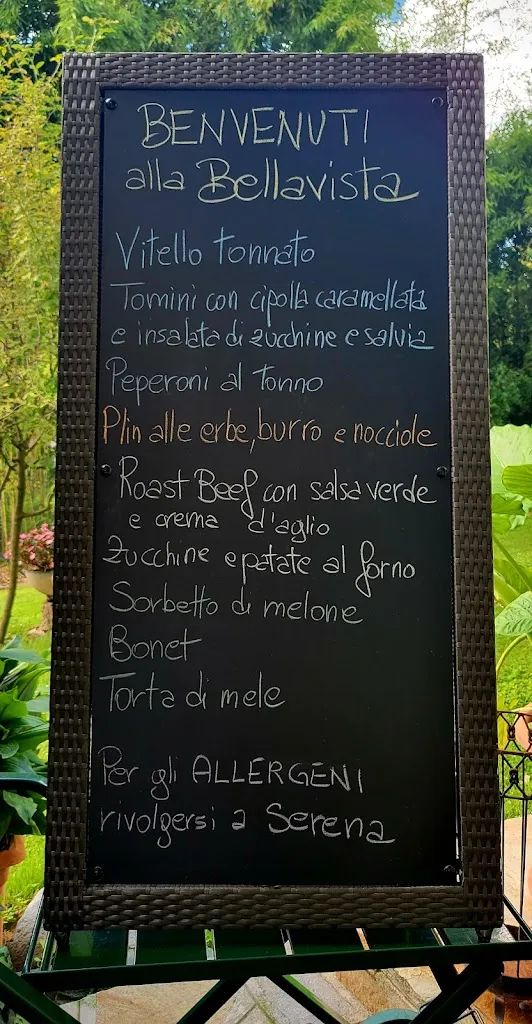 BENVENUTI
alla Bellavista
Vitello tonnato
Tomini con cipolla caramellata
e insalata di zucchine e salvia
Peperoni al tonno
Plin alle erbe, burro e nocciole
Roast Beef con salsa verde
e crema d'aglio
Zucchine e patate al forno
Sorbetto di melone
Bonet
Torta di mele
Per gli ALLERGENI
rivolgersi a Serena